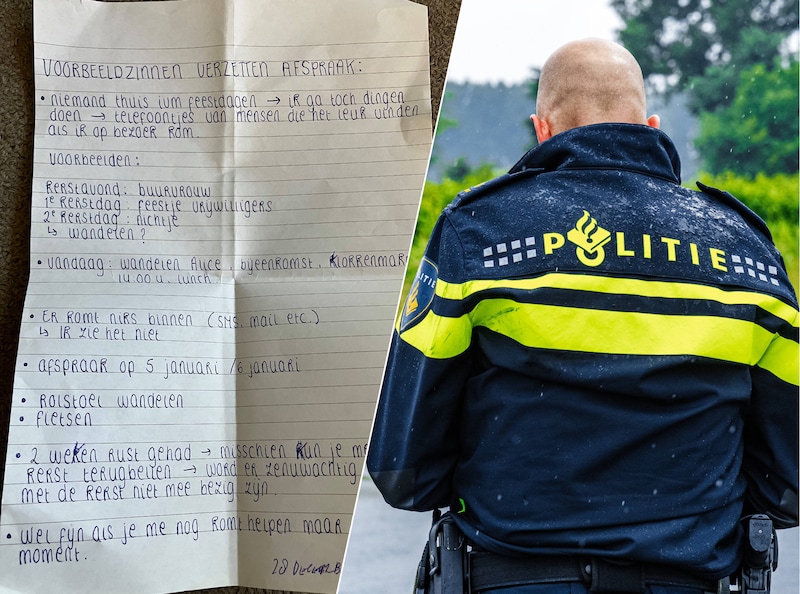 VOORBEELDZINNEN VERZETTEN AFSPRAAK:
• niemand thuis ivm feestdagen → ik ga toch dingen
doen → telefoontjes van mensen die het leuk vinden
als ik op bezoek kom.
VOORBEELDEN:
Kerstavond: buurvrouw
1e Kerstdag: feestje vrijwilligers
2e Kerstdag: nichtje
↳ wandelen?
• Vandaag: wandelen Alice, bijeenkomst, Klokkenmar
14.00 u. lunch
• Er komt niks binnen (SMS, mail etc.)
↳ ik zie het niet
• afspraak op 5 januari / 6 januari
• Rolstoel wandelen
• Fietsen
• 2 weken rust gehad → misschien kun je me
kerst terugbellen → word er zenuwachtig
met de kerst niet mee bezig zijn.
• Wel fijn als je me nog komt helpen maar
moment.
POLITIE
POLITIE